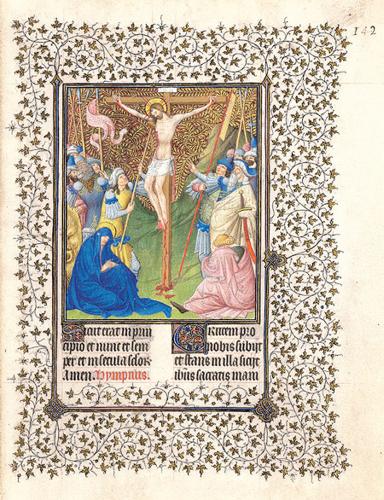 142
Sicut erat in prin
cipio et nunc et sem
per et in secula sclor
Amen. Hympnus.
Crucem pro
nobis subiit
et stans in illa sciit
ihus sacratis mani